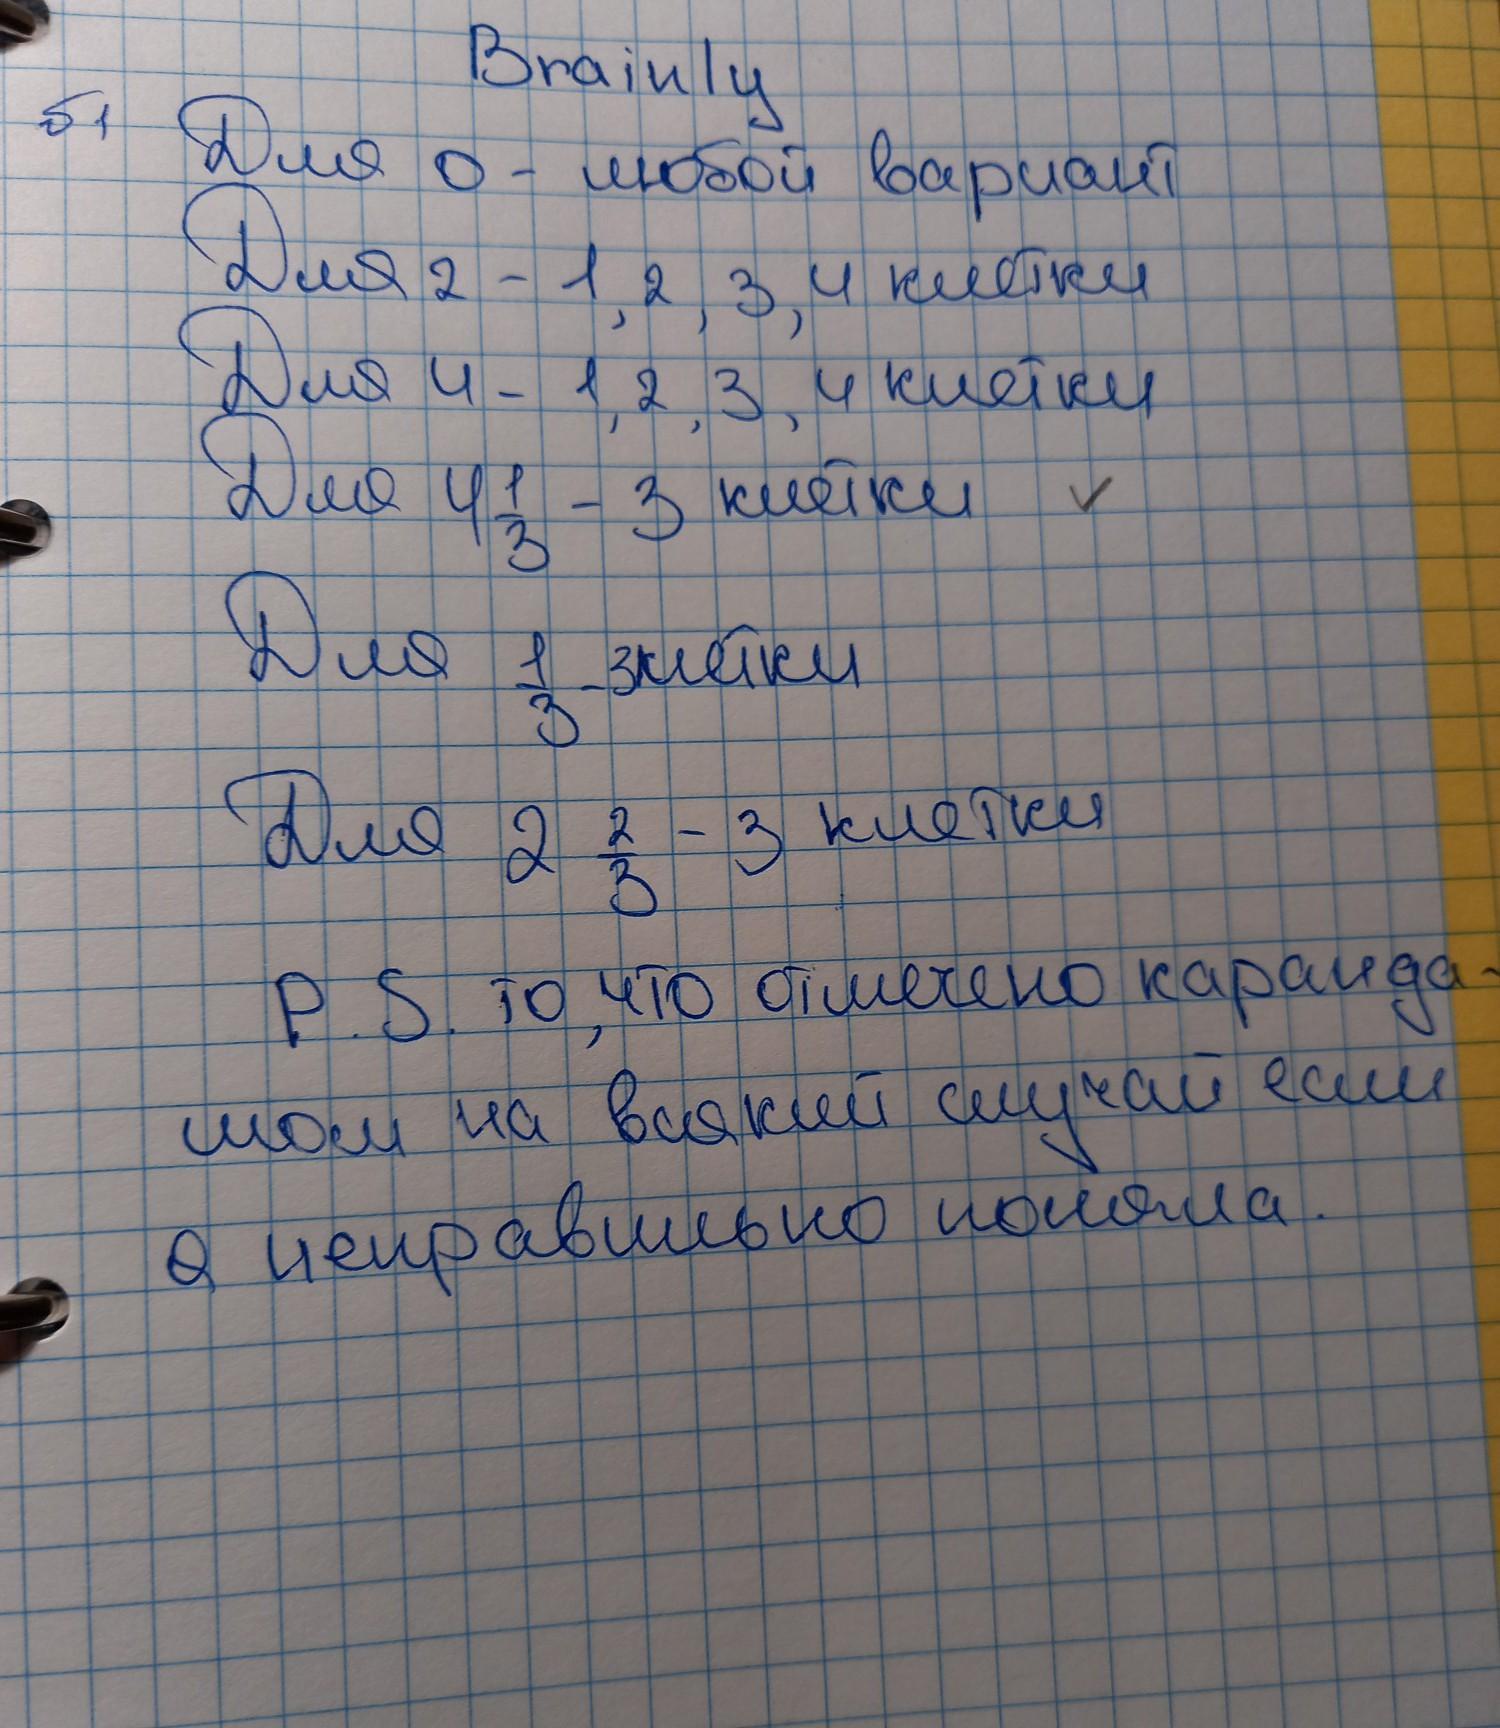 Brainly
б) Для 0 - любой вариант
Для 2 - 1, 2, 3, 4 клетки
Для 4 - 1, 2, 3, 4 клетки
Для 4 1/3 - 3 клетки ✓
Для 1/3 - 3 клетки
Для 2 2/3 - 3 клетки
P.S. то, что отмечено каранда-
шом на всякий случай если
я неправильно поняла.